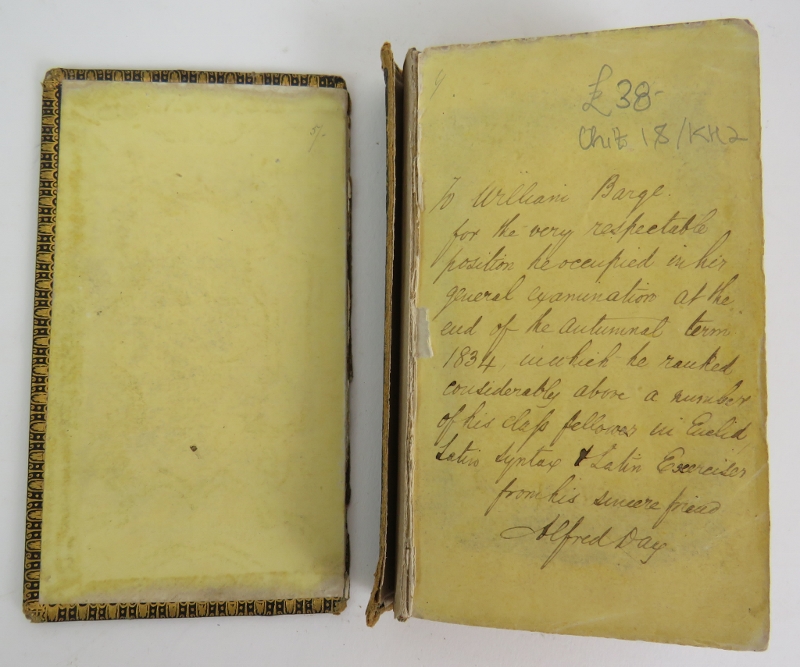 5/-
£38-
18/KH2
To William Barge.
for the very respectable
position he occupied in his
general examination at the
end of the Autumnal term
1834, in which he ranked
considerably above a number
of his class fellows in Euclid,
Latin Syntax & Latin Exercises
from his sincere friend
Alfred Day